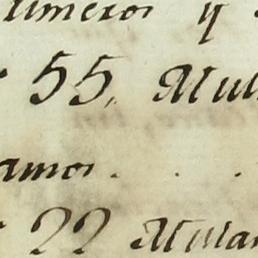 umeros y
55, Mul
amos . . .
22 Mular